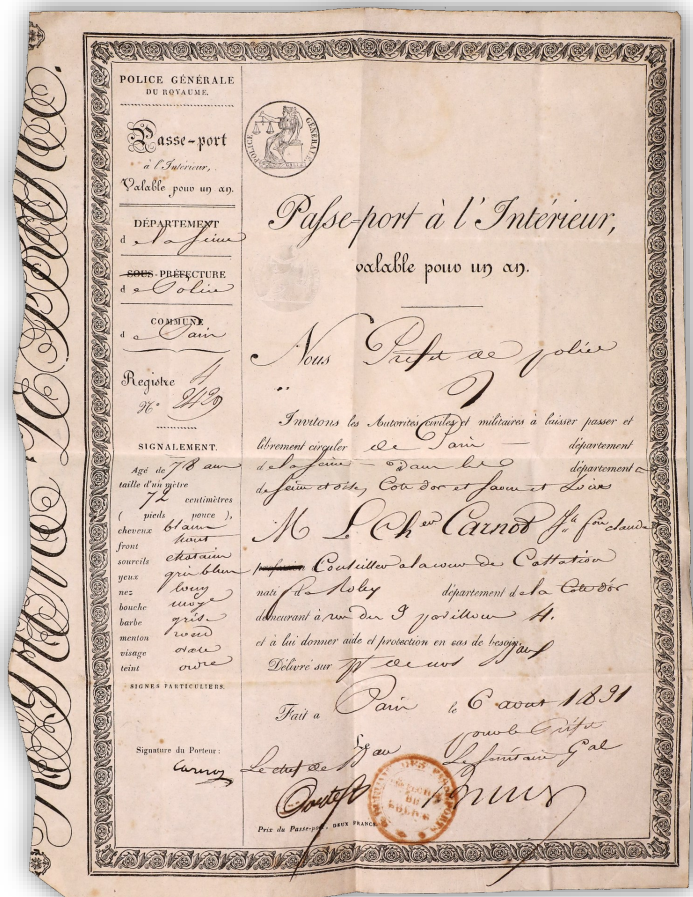 POLICE GÉNÉRALE
DU ROYAUME.
Passe-port
à l'Intérieur,
Valable pour un an.
DÉPARTEMENT
d e la Seine
SOUS-PRÉFECTURE
d e Police
COMMUNE
d e Paris
Registre 4
N° 2429
SIGNALEMENT.
Agé de 78 ans
taille d'un mètre
72 centimètres
( pieds pouce ),
cheveux blancs
front haut
sourcils chatains
yeux gris bleus
nez long
bouche moye
barbe grise
menton rond
visage ovale
teint ordre
SIGNES PARTICULIERS.
Signature du Porteur:
Carnot
POLICE GÉNÉRALE
Passe-port à l'Intérieur,
valable pour un an.
Nous Préfet de police
Invitons les Autorités civiles et militaires à laisser passer et
librement circuler de Paris département
de la Seine dans les département
de Seine et Oise, Cote d'or et Saone et Loire
M Le Ch er Carnot Jh fois Claude
profession Conseiller a la cour de Cassation
natif de Nolay département de la Cote d'or
demeurant à rue des 3 pavillons 4.
et à lui donner aide et protection en cas de besoin.
Délivré sur de nos
Fait a Paris le 6 aout 1831
pour le Préfet
Le chef de Bau Le Secrétaire Gal
Prix du Passe-port, DEUX FRANCS
ROYAUME DE FRANCE.